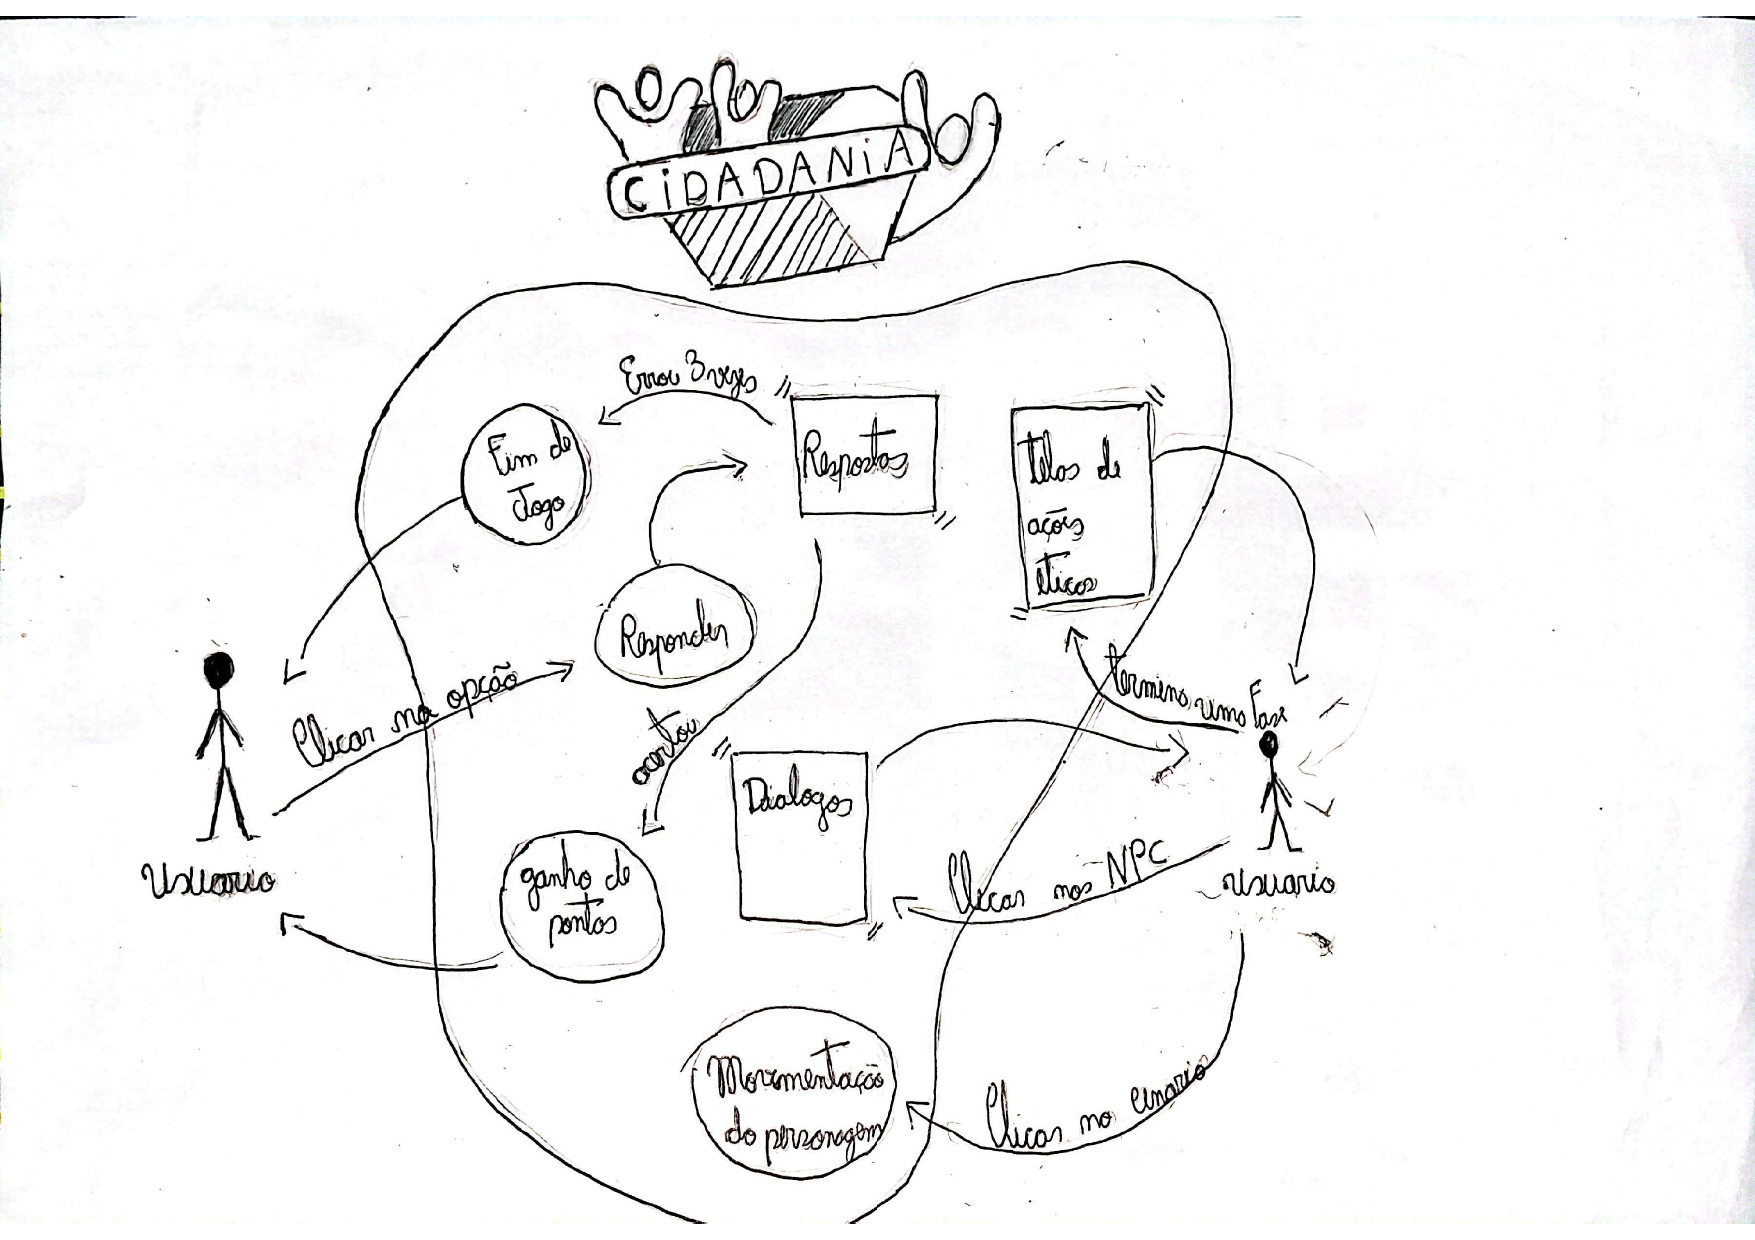 CiDADANiA
Errou 3 vezes
Fim de
Jogo
Respostas
telas de
ações
éticas
Responder
Clicar na opção
termina uma Fase
acertou
Dialogos
Usuario
ganho de
pontos
Clicar nos NPC
Usuario
Movimentação
do personagem
Clicar no cenario